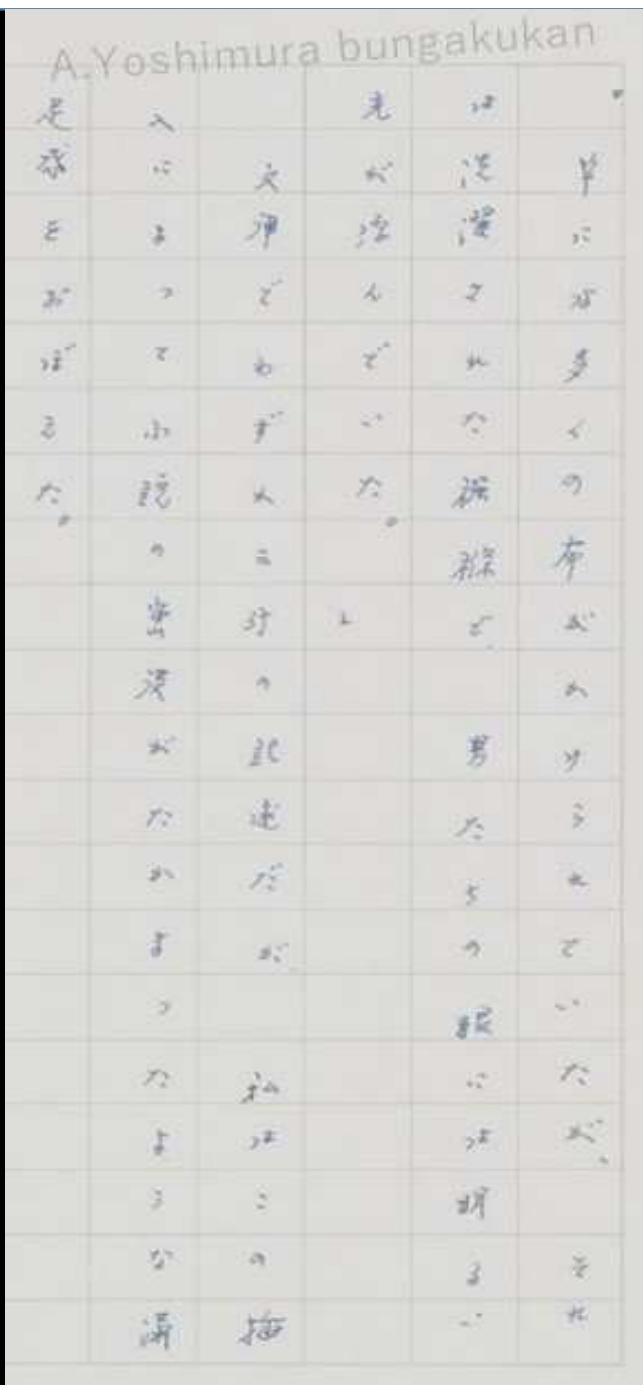 A.Yoshimura bungakukan
竿には多くの布がかけられていたが、それ
は洗濯された襁褓で、男たちの眼には明るい
光が泛んでいた。」
でわずか二行の記述だが 私はこの挿
入によって小説の密度がたかまったような満
足感をおぼえた。